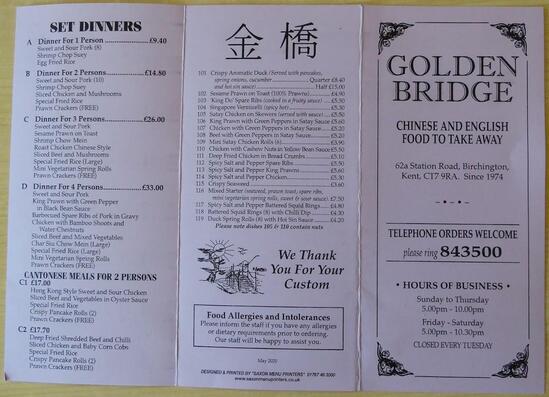 SET DINNERS
A Dinner For 1 Person ........ £9.40
Sweet and Sour Pork (8)
Shrimp Chop Suey
Egg Fried Rice
B Dinner For 2 Persons ........ £14.80
Sweet and Sour Pork (10)
Shrimp Chop Suey
Sliced Chicken and Mushrooms
Special Fried Rice
Prawn Crackers (FREE)
C Dinner For 3 Persons ........ £26.00
Sweet and Sour Pork
Sesame Prawn on Toast
Shrimp Chow Mein
Roast Chicken Chinese Style
Sliced Beef and Mushrooms
Special Fried Rice (Large)
Mini Vegetarian Spring Rolls
Prawn Crackers (FREE)
D Dinner For 4 Persons ........ £33.00
Sweet and Sour Pork
King Prawn with Green Pepper
in Black Bean Sauce
Barbecued Spare Ribs of Pork in Gravy
Chicken with Bamboo Shoots and
Water Chestnuts
Sliced Beef and Mixed Vegetables
Char Siu Chow Mein (Large)
Special Fried Rice (Large)
Mini Vegetarian Spring Rolls
Prawn Crackers (FREE)
CANTONESE MEALS FOR 2 PERSONS
C1 £17.00
Hong Kong Style Sweet and Sour Chicken
Sliced Beef and Vegetables in Oyster Sauce
Special Fried Rice
Crispy Pancake Rolls (2)
Prawn Crackers (FREE)
C2 £17.70
Deep Fried Shredded Beef and Chilli
Sliced Chicken and Baby Corn Cobs
Special Fried Rice
Crispy Pancake Rolls (2)
Prawn Crackers (FREE)
金橋
101 Crispy Aromatic Duck (Served with pancakes,
spring onions, cucumber ........ Quarter £8.40
and hoi sin sauce) ........ Half £15.00
102 Sesame Prawn on Toast (100% Prawns) ........ £4.90
103 'King Do' Spare Ribs (cooked in a fruity sauce) ........ £5.30
104 Singapore Vermicelli (spicy hot) ........ £5.30
105 Satay Chicken on Skewers (served with sauce) ........ £5.50
106 King Prawn with Green Peppers in Satay Sauce £5.60
107 Chicken with Green Peppers in Satay Sauce ........ £5.20
108 Beef with Green Peppers in Satay Sauce ........ £5.20
109 Mini Satay Chicken Rolls (6) ........ £3.90
110 Chicken with Cashew Nuts in Yellow Bean Sauce £5.50
111 Deep Fried Chicken in Bread Crumbs ........ £5.10
112 Spicy Salt and Pepper Spare Ribs ........ £5.50
113 Spicy Salt and Pepper King Prawns ........ £5.60
114 Spicy Salt and Pepper Chicken ........ £5.30
115 Crispy Seaweed ........ £3.60
116 Mixed Starter (seaweed, prawn toast, spare ribs,
mini vegetarian spring rolls, sweet & sour sauce) £7.50
117 Spicy Salt and Pepper Battered Squid Rings ........ £4.80
118 Battered Squid Rings (8) with Chilli Dip ........ £4.30
119 Duck Spring Rolls (8) with Hoi Sin Sauce ........ £4.20
Please note dishes 105 & 110 contain nuts
We Thank
You For Your
Custom
Food Allergies and Intolerances
Please inform the staff if you have any allergies
or dietary requirements prior to ordering.
Our staff will be happy to assist.
May 2020
DESIGNED & PRINTED BY "SAXON MENU PRINTERS"
www.saxonmenuprinters.co.uk
GOLDEN
BRIDGE
CHINESE AND ENGLISH
FOOD TO TAKE AWAY
62a Station Road, Birchington,
Kent, CT7 9RA. Since 1974
TELEPHONE ORDERS WELCOME
please ring 843500
• HOURS OF BUSINESS •
Sunday to Thursday
5.00pm - 10.00pm
Friday - Saturday
5.00pm - 10.30pm
CLOSED EVERY TUESDAY